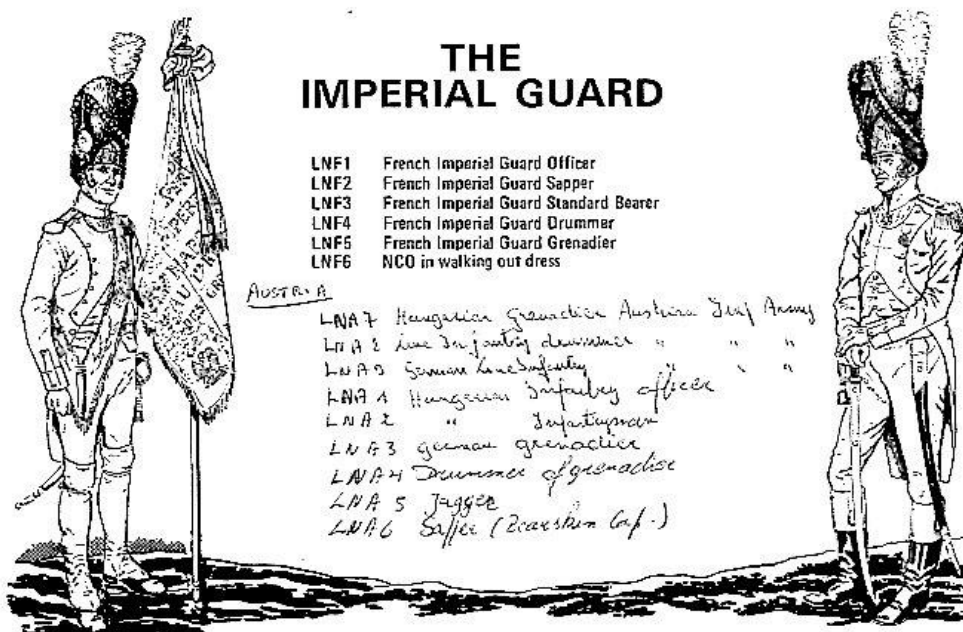 THE
IMPERIAL GUARD
LNF1 French Imperial Guard Officer
LNF2 French Imperial Guard Sapper
LNF3 French Imperial Guard Standard Bearer
LNF4 French Imperial Guard Drummer
LNF5 French Imperial Guard Grenadier
LNF6 NCO in walking out dress
AUSTRIA
LNA7 Hungarian Grenadier Austrian Army
LNA 8 Line Infantry drummer " " "
LNA 9 German Line Infantry " " "
LNA 1 Hungarian Infantry officer
LNA 2 " Infantryman
LNA 3 German grenadier
LNA 4 Drummer of grenadier
LNA 5 Jagger
LNA 6 (Bearskin Cap.)